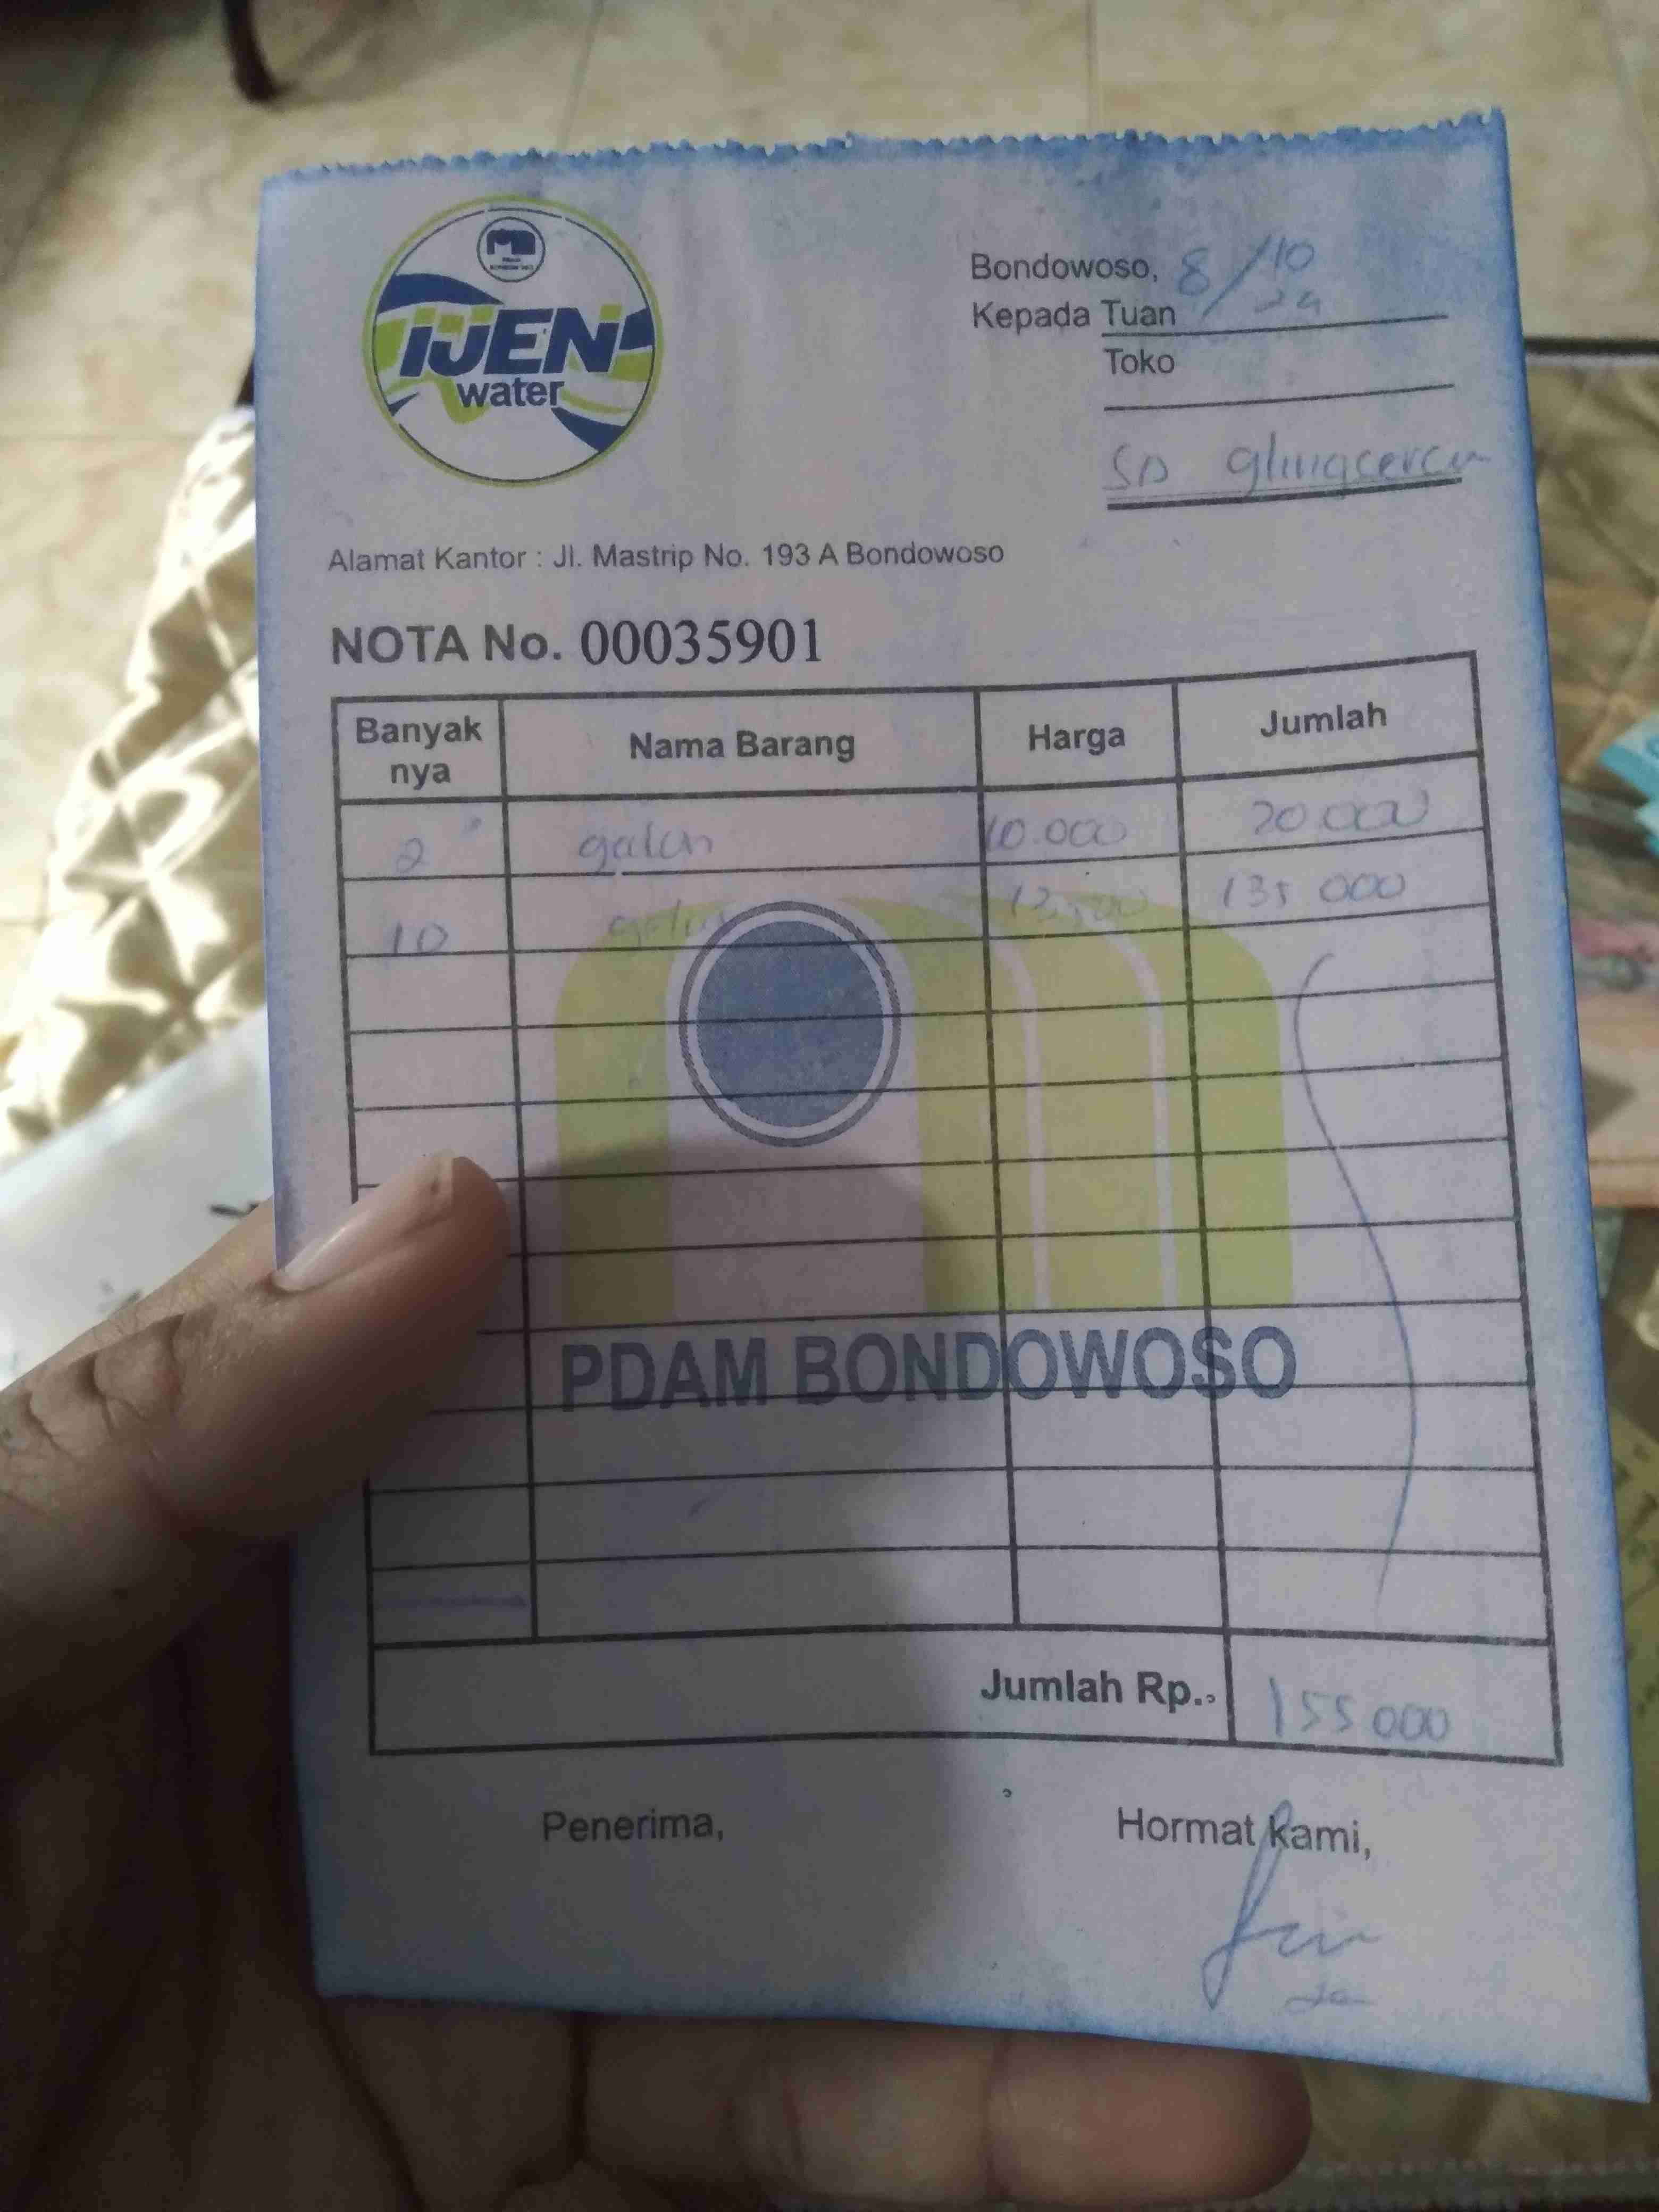 IJEN
water
Bondowoso, 8/10 24
Kepada Tuan
Toko
SD
Alamat Kantor : Jl. Mastrip No. 193 A Bondowoso
NOTA No. 00035901
Banyak nya Nama Barang Harga Jumlah
2 galon 10.000 20.000
10 galon 13.500 135 000
PDAM BONDOWOSO
Jumlah Rp. 155 000
Penerima,
Hormat kami,